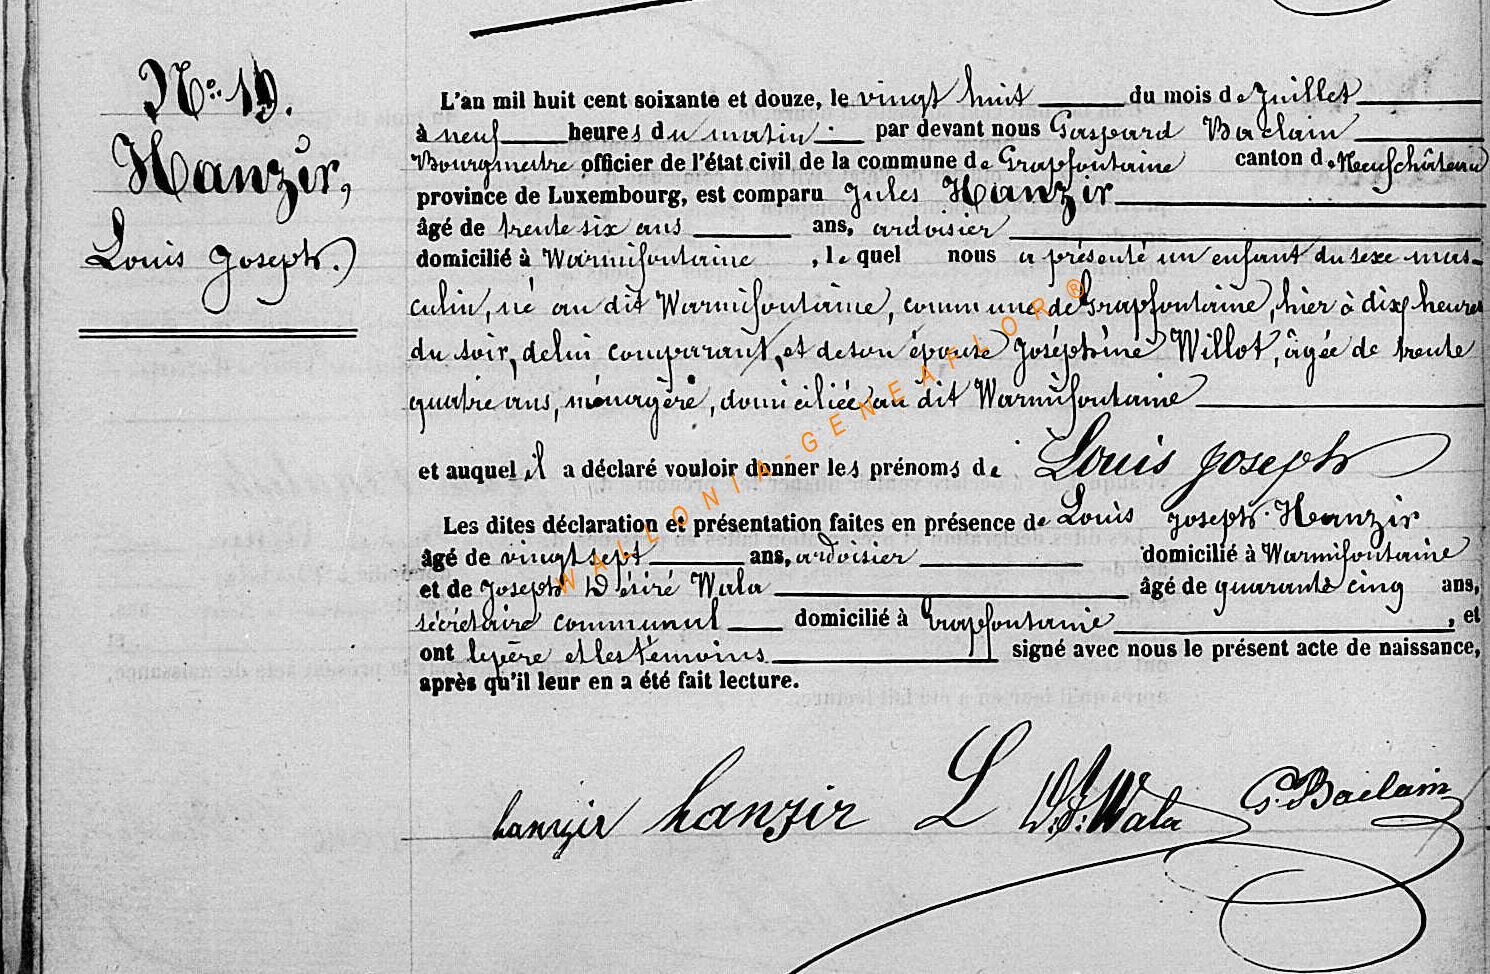 N° 19.
Hanzir,
Louis Joseph.)
L'an mil huit cent soixante et douze, le vingt huit du mois de Juillet
à neuf heures du matin par devant nous Gaspard Baclain
Bourgmestre officier de l'état civil de la commune de Grapfontaine canton de Neufchâteau
province de Luxembourg, est comparu Jules Hanzir
âgé de trente six ans ans, ardoisier
domicilié à Warmifontaine, lequel nous a présenté un enfant du sexe mas-
culin, né au dit Warmifontaine, commune de Grapfontaine, hier à dix heures
du soir, de lui comparant, et de son épouse Joséphine Willot, âgée de trente
quatre ans, ménagère, domiciliée au dit Warmifontaine
et auquel il a déclaré vouloir donner les prénoms de Louis Joseph
Les dites déclaration et présentation faites en présence de Louis Joseph Hanzir
âgé de vingt sept ans, ardoisier domicilié à Warmifontaine
et de Joseph Désiré Wala âgé de quarante cinq ans,
secrétaire communal domicilié à Grapfontaine, et
ont le père et les témoins signé avec nous le présent acte de naissance,
après qu'il leur en a été fait lecture.
hanzir hanzir L D.J. Wala G. Baclain
WALLONIA-GENEAFLOR®